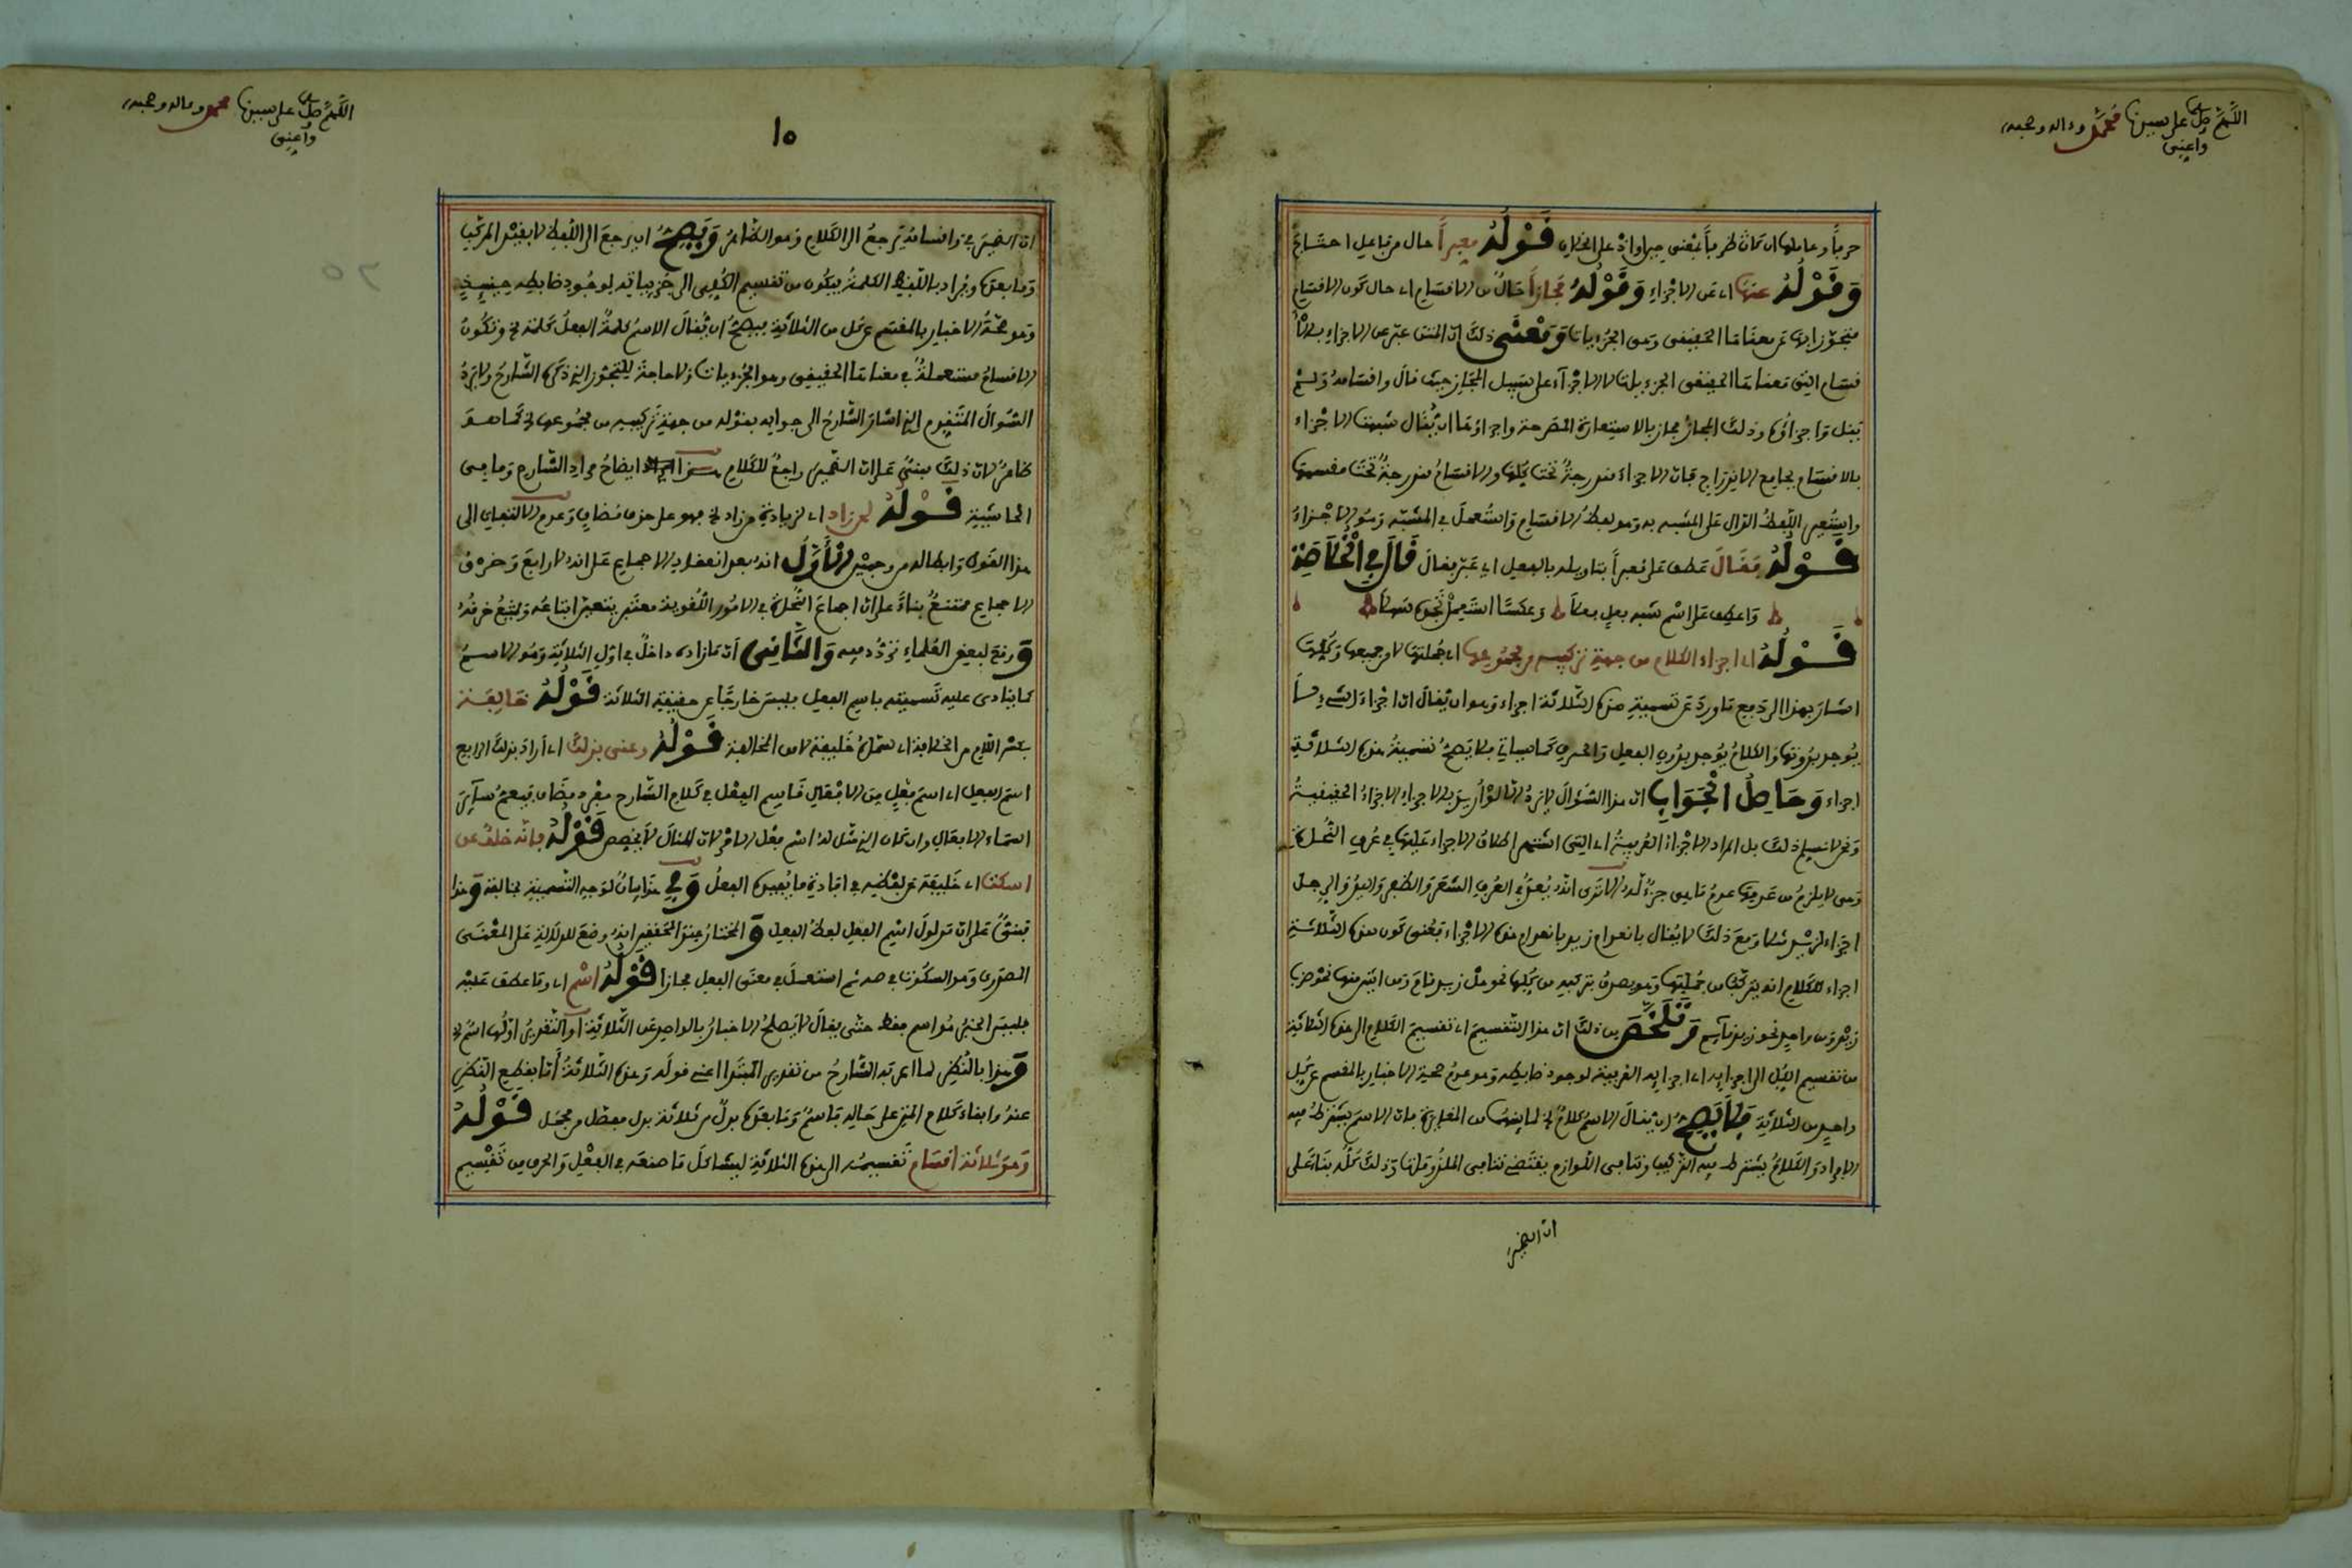 اللهم صل على سيدنا محمد وءاله وصحبه
وأعني
حرفا وعاملها ان كانت ظرفا بمعنى حين او اذ على الخلاف قَوْلُهُ معبرا حال من فاعل
وَقَوْلُهُ عنها اي عن الاجزاء وَقَوْلُهُ مجازا حال من الاقسام اي حال كون الاقسام
متجوزا بها عن معناها الحقيقي وهي الجزءيات وَمَعْنَى ذلك ان المتن عبر عن الاجزاء بالا
قسام التي معناها الحقيقي الجزءيات لا الاجزاء على سبيل المجاز حيث قال واقسامه ولم
يقل واجزاؤه وذلك المجاز مجاز بالاستعارة المصرحة واجراؤها ان يقال شبهت الاجزاء
بالاقسام بجامع الاندراج فان الاجزاء مندرجة تحت كلها والاقسام مندرجة تحت مقسمها
واستعير اللفظ الدال على المشبه به وهو لفظ الاقسام واستعمل في المشبه وهو الاجزاء
قَوْلُهُ فقال عطف على معبرا بتاويله بالفعل اي عبر فقال قَالَ فِي الْخُلَاصَةِ
واعطف على اسم شبه فعل فعلا وعكسا استعمل تجده سهلا
قَوْلُهُ اي اجزاء الكلام من جهة تركيبه من مجموعها اي جملتها لا من جميعها وكلها
اشار بهذا الى دفع ما ورد على تسمية هذه الثلاثة اجزاء وهو ان يقال ان اجزاء الشيء لا
يوجد بدونها والكلام يوجد بدون الفعل والحرف كما سياتي فلا يصح تسمية هذه الثلاثة
اجزاء وَحَاصِلُ الْجَوَابِ ان هذا السؤال لا يرد الا لو اريد بالاجزاء الاجزاء الحقيقية
ونحن لا نسلم ذلك بل المراد الاجزاء العرفية اي التي اشتهر اطلاق الاجزاء عليها في عرف النحاة
وهي لا يلزم من عدمها عدم ما هي جزء له الا ترى انه يعد في العرف الشعر والظفر واليد والرجل
اجزاء لزيد مثلا ومع ذلك لا يقال بانعدام زيد بانعدام هذه الاجزاء فمعنى كون هذه الثلاثة
اجزاء للكلام انه يتركب من جملتها وهو يصدق بتركبه من كلها نحو هل زيد قام ومن اثنين منها نحو ضرب
زيد ومن واحد نحو زيد قايم وَتَلَخَّصَ من ذلك ان هذا التقسيم اي تقسيم الكلام الى هذه الثلاثة
من تقسيم الكل الى اجزايه اي اجزايه العرفية لوجود ضابطه وهو عدم صحة الاخبار بالمقسم عن كل
واحد من الثلاثة فَلَا يَصِحُّ ان يقال الاسم كلام الخ لما بينهما من المغايرة فان الاسم يشترط فيه
الافراد والكلام يشترط فيه التركيب وتنافي اللوازم يقتضي تنافي الملزومات وذلك كله بناء على
ان الضمير
اللهم صل على سيدنا محمد وءاله وصحبه
وأعني
١٥
ان الضمير في واقسامه يرجع الى الكلام وهو الظاهر وَيَصِحُّ ان يرجع الى اللفظ لا بقيد المركب
وما بعده ويراد باللفظ الكلمة فيكون من تقسيم الكلي الى جزءياته لوجود ضابطه حينئذ
وهو صحة الاخبار بالمقسم عن كل من الثلاثة فيصح ان يقال الاسم كلمة الفعل كلمة الخ وتكون
الاقسام مستعملة في معناها الحقيقي وهو الجزءيات ولا حاجة للتجوز الذي ذكره الشارح ولا يرد
السؤال المتقدم الذي اشار الشارح الى جوابه بقوله من جهة تركيبه من مجموعها الخ كما هو
ظاهر لان ذلك مبني على ان الضمير راجع للكلام هذا ايضاح مراد الشارح وما في
الحاشية قَوْلُهُ لمن زاد اي لزيادة من زاد الخ فهو على حذف مضاف وعدم الالتفات الى
هذا القول وابطاله من وجهين الْأَوَّلُ انه بعد انعقاد الاجماع على انه لا رابع وخرق
الاجماع ممتنع بناء على ان اجماع النحاة في الامور اللغوية معتبر يتعين اتباعه ويمنع خرقه
وَ وقع لبعض العلماء تردد فيه وَالثَّانِي ان ما زاده داخل في اول الثلاثة وهو الاسم
كما ينادي عليه تسميته باسم الفعل فليس خارجا عن حقيقة الثلاثة قَوْلُهُ خالفة
بكسر اللام من الخلافة اي خليفة لا من المخالفة قَوْلُهُ وعنى بذلك اي اراد بذلك الرابع
اسم الفعل اي اسم فعل من الافعال فاسم الفعل في كلام الشارح مفرد مضاف فيعم سائر
اسماء الافعال وان كان الذي مثل له اسم فعل الامر لان المثال لا يخصص قَوْلُهُ فانه خلف عن
اسكت اي خليفة عن لفظه في افادة ما يفيده الفعل وَفِي هذا بيان لوجه التسمية بخالفة وَهذا
مبني على ان مدلول اسم الفعل لفظ الفعل وَ المختار عند التحقيق انه وضع للدلالة على المعنى
المصدري وهو السكوت في صه ثم استعمل في معنى الفعل مجازا قَوْلُهُ اسم اي وما عطف عليه
فليس الخبر هو اسم فقط حتى يقال لا يصلح الاخبار بالواحد عن الثلاثة او التقدير اولها اسم الخ
وَهذا بالنظر لما اعربه الشارح من تقدير المبتدا اعني قوله وهذه الثلاثة اما بقطع النظر
عنه وابقاء كلام المتن على حاله فاسم وما بعده بدل من ثلاثة بدل مفصل من مجمل قَوْلُهُ
وهو ثلاثة اقسام تقسيمه الى هذه الثلاثة ليشاكل ما صنعه في الفعل والحرف من تقسيم